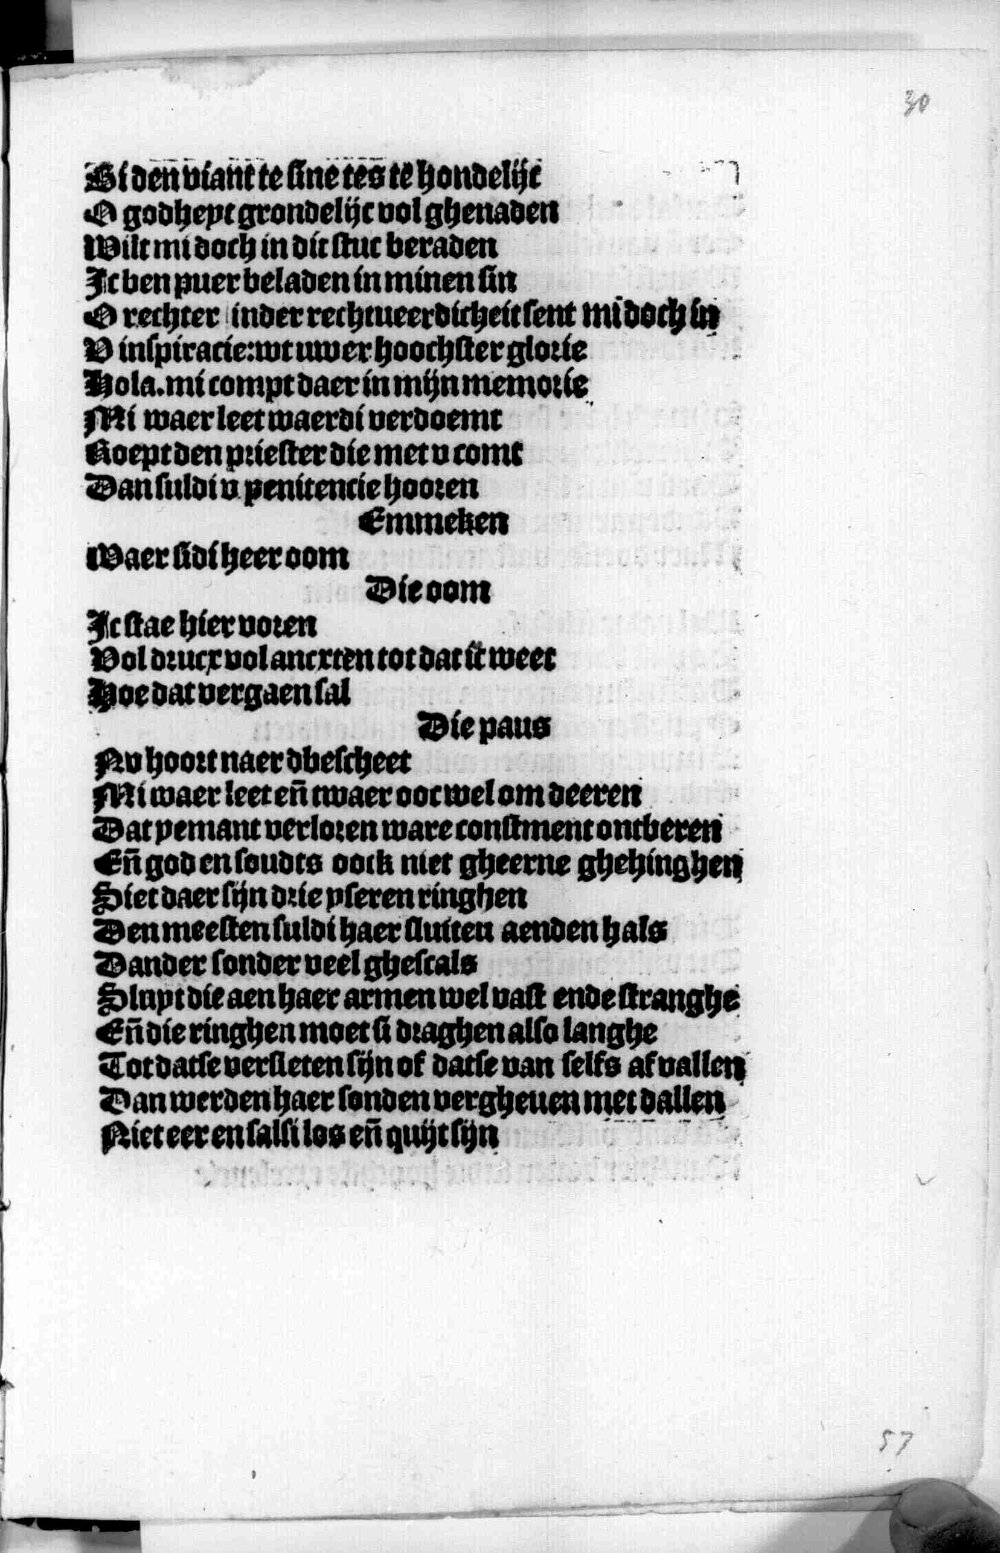 30
Bi den viant te sine tes te hondelijc
O godheyt grondelijc vol ghenaden
Wilt mi doch in dit stuc beraden
Ic ben puer beladen in minen sin
O rechter inder rechtueerdicheit sent mi doch in
V inspiracie: wt uwer hoochster glorie
Hola. mi compt daer in mijn memorie
Mi waer leet waerdi verdoemt
Roept den priester die met v comt
Dan suldi v penitencie hooren
Emmeken
Waer sidi heer oom
Die oom
Ic stae hier voren
Vol drucx vol ancxten tot dat ic weet
Hoe dat vergaen sal
Die paus
Nv hoort naer dbescheet
Mi waer leet en̄ twaer oot wel om deeren
Dat yemant verloren ware constment ontberen
En̄ god en soudts oock niet gheerne ghehinghen
Siet daer sijn drie yseren ringhen
Den meesten suldi haer sluiten aenden hals
Dander sonder veel ghescals
Sluyt die aen haer armen wel vast ende stranghe
En̄ die ringhen moet si draghen also langhe
Tot datse versleten sijn of datse van selfs af vallen
Dan werden haer sonden vergheuen met dallen
Niet eer en sal si los en̄ quijt sijn
57